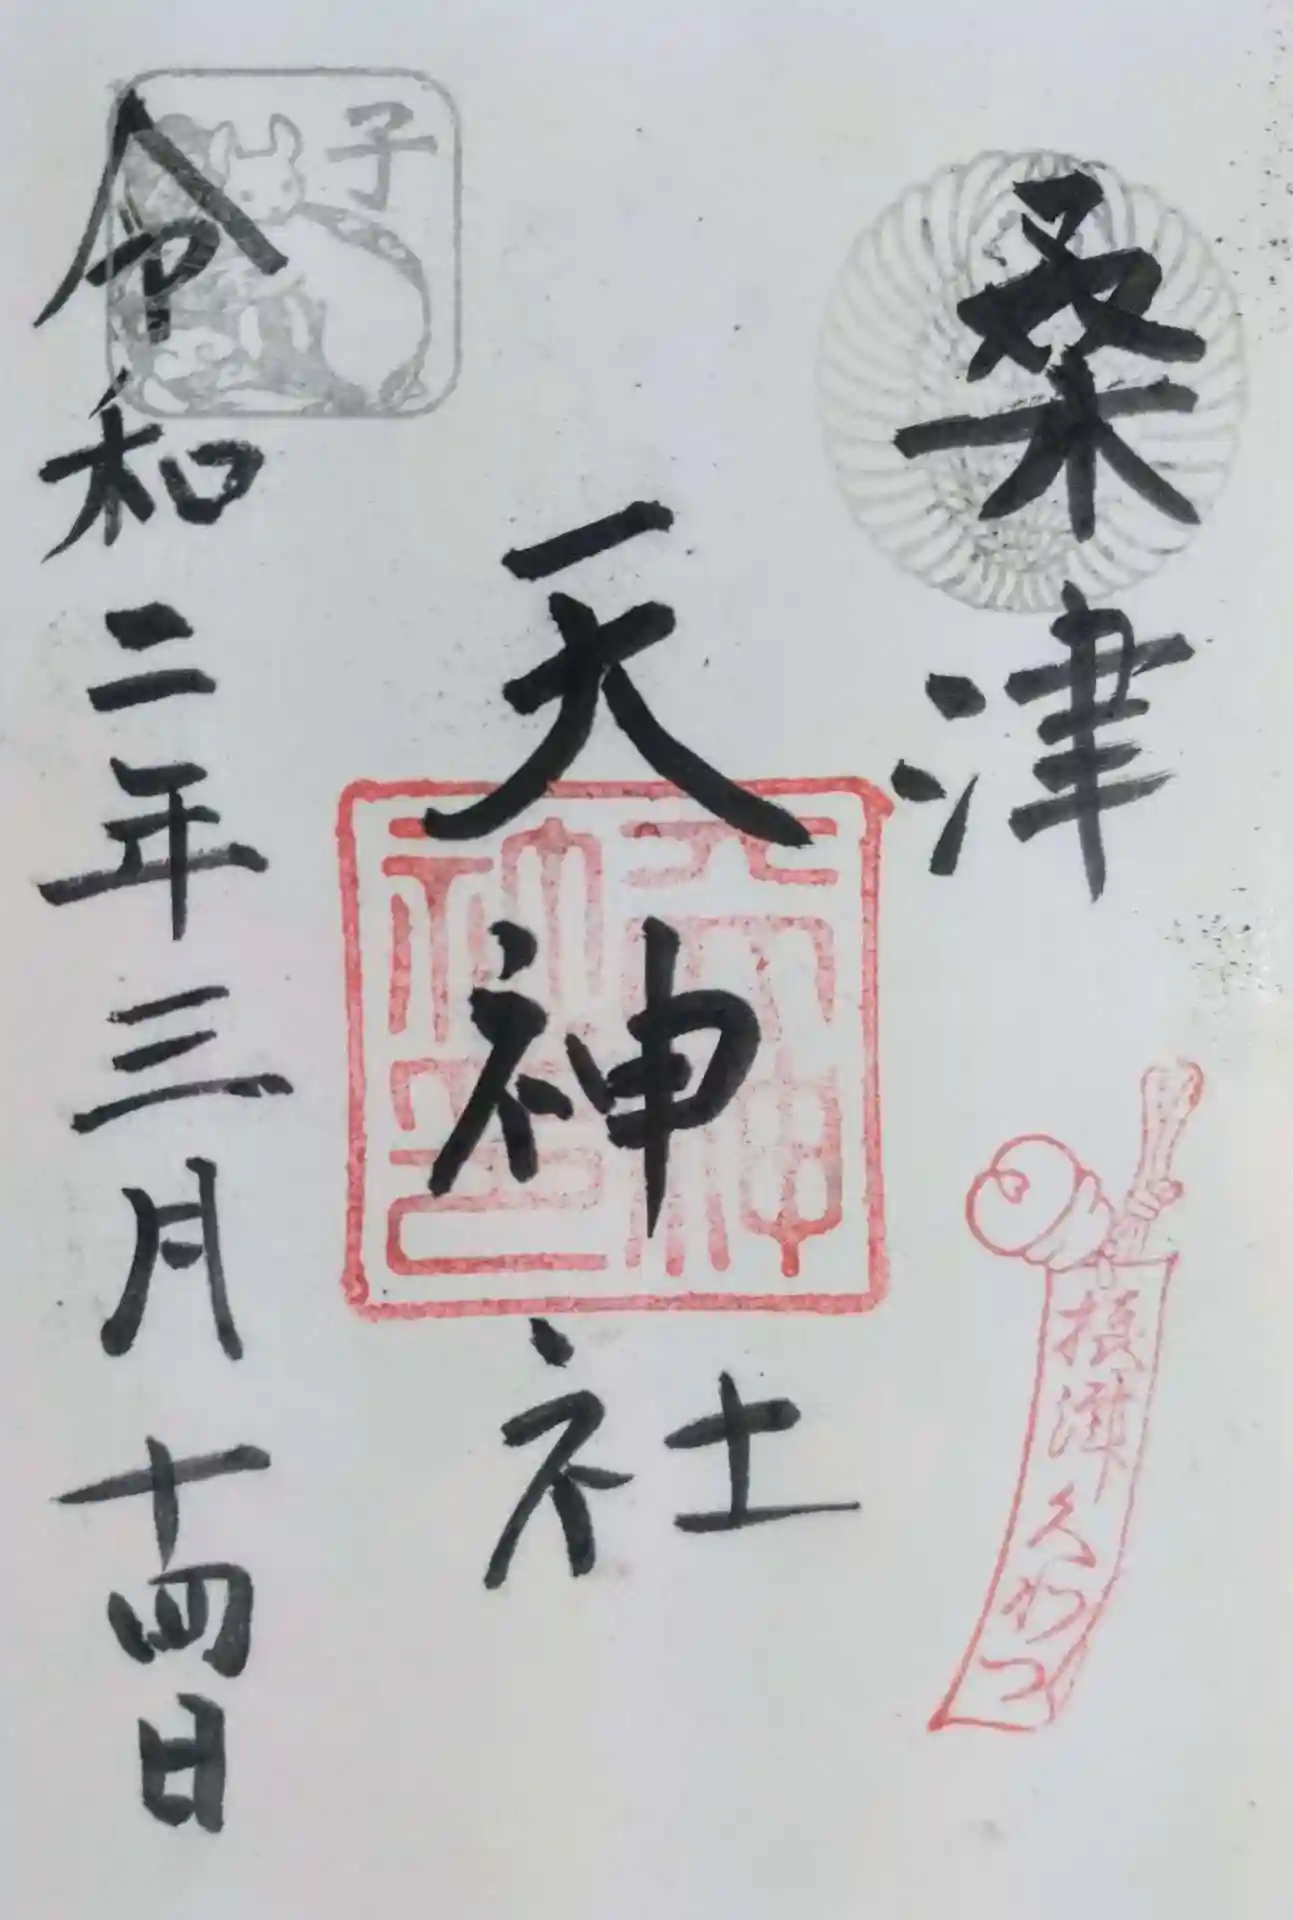 桑津
摂津くわつ
天神社
天神社
神主之印
子
令和二年三月十四日